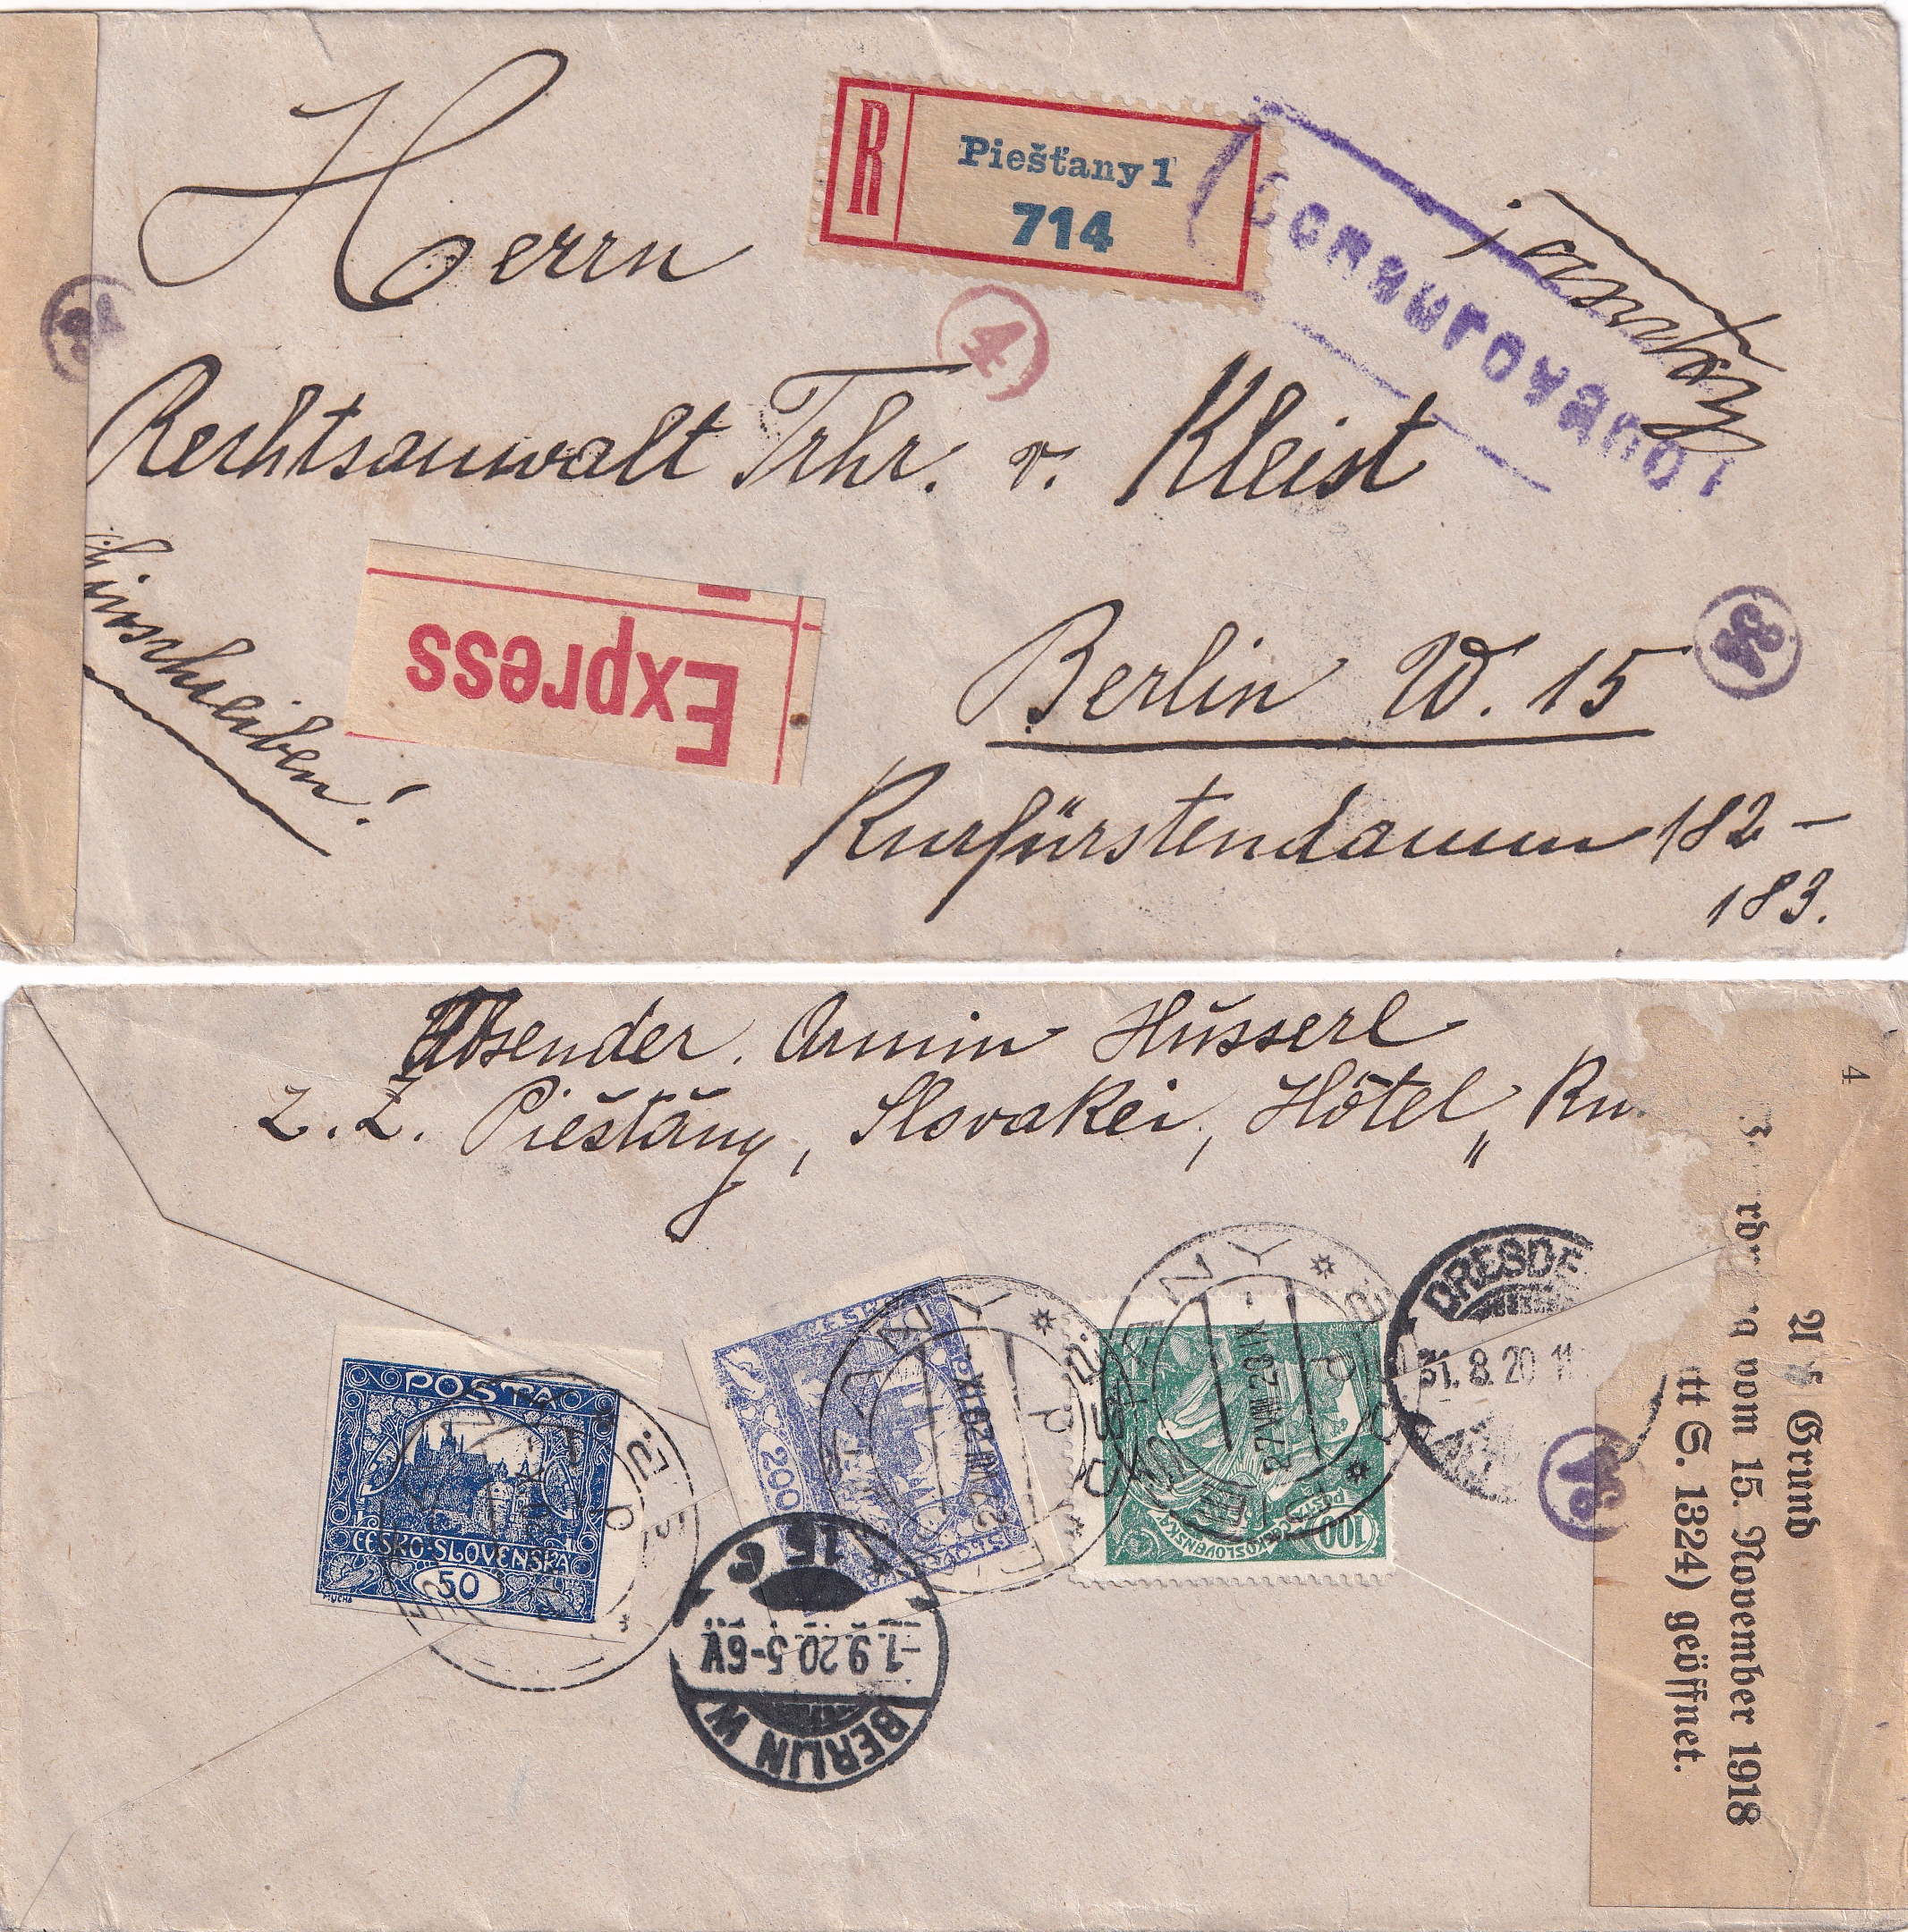 Herrn
R
Piešťany 1
714
Censurované!
Express!
4
Rechtsanwalt Frhr. v. Kleist
Einschreiben!
Express
Berlin W. 15
Kurfürstendamm 182–
183.
Absender. Armin Husserl
z. Z. Piěštǎny, Slovakei, Hôtel „
POSTA
ČESKO-SLOVENSKÁ
50
MUCHA
200
100
DRESDE
31.8.20 11
15 c
-1.9.20.5-6V.
BERLIN W
4
Grund
vom 15. November 1918
S. 1324) geöffnet.